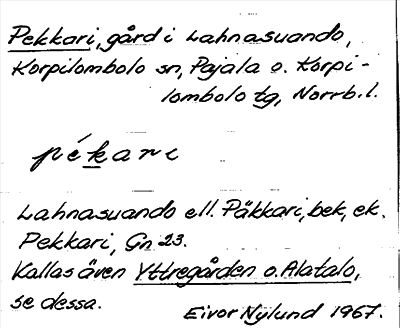 Pekkari, gård i Lahnasuando,
Korpilombolo sn, Pajala o. Korpi-
lombolo tg, Norrb. l.
pékari
Lahnasuando ell. Päkkari, bek, ek.
Pekkari, Gn 23.
Kallas även Yttregården o. Alatalo,
se dessa.
Eivor Nylund 1967.